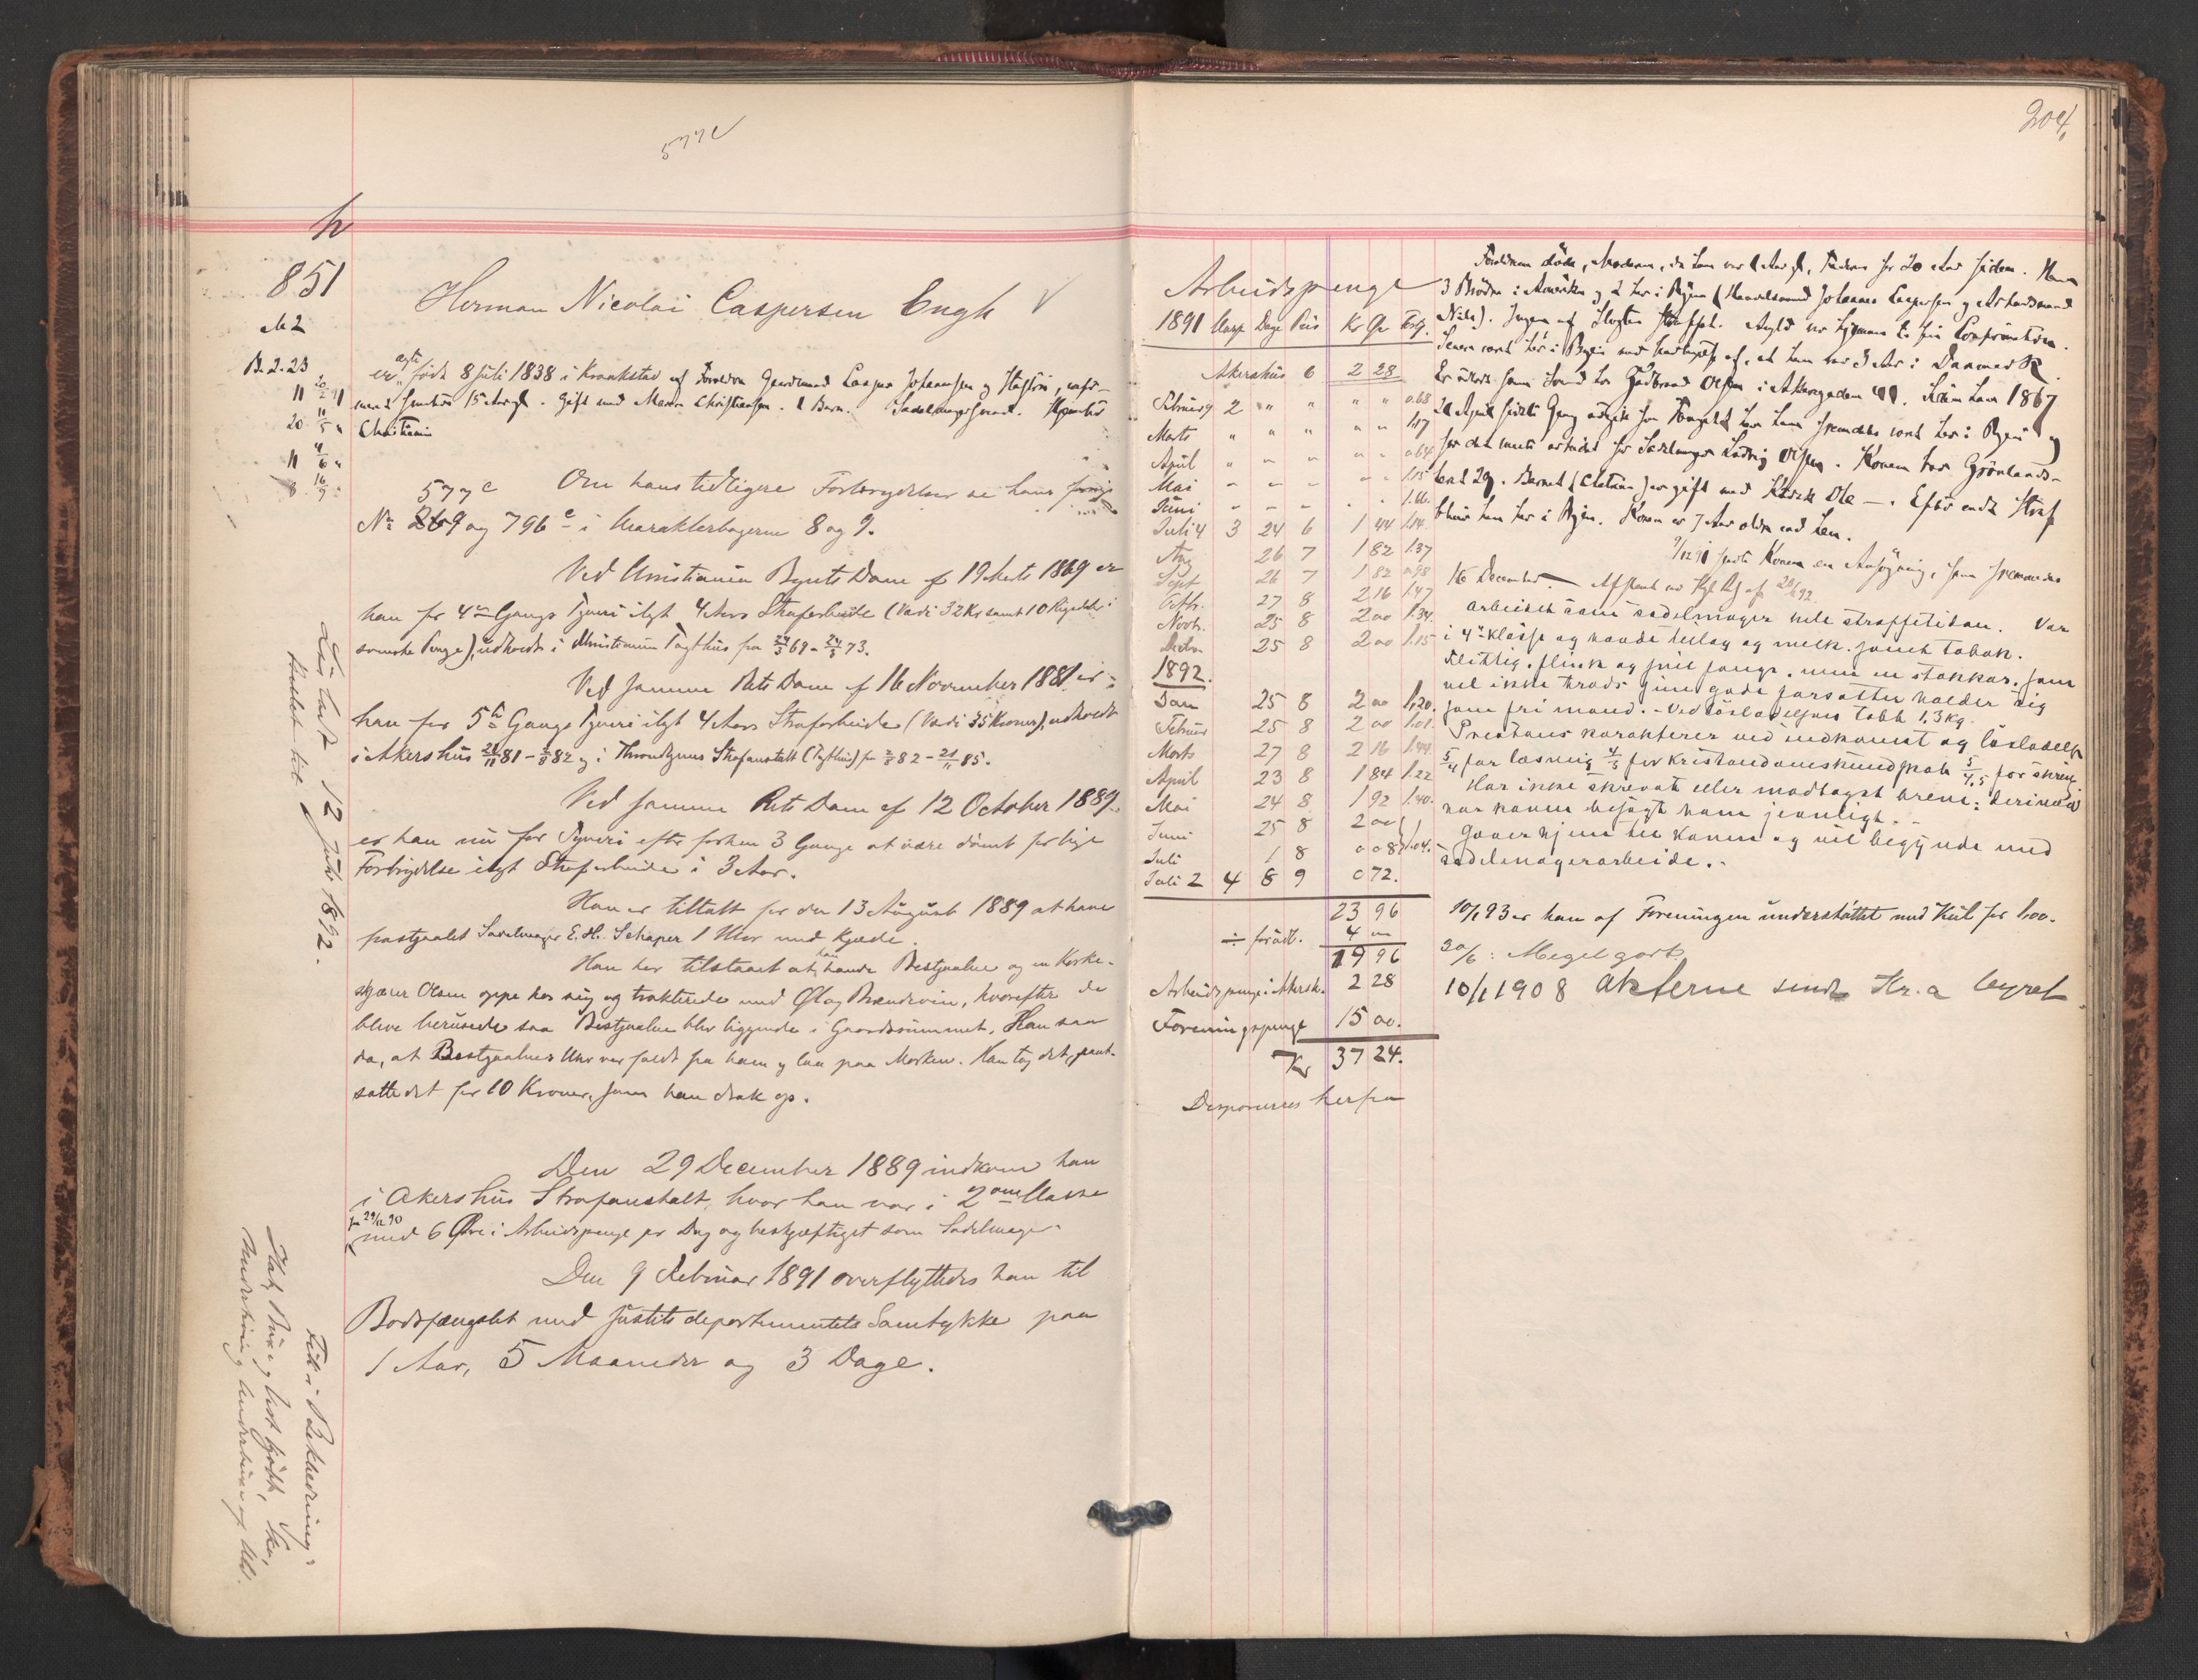 577c
h
851
M 2
B. 2. 23
Herman Nicolai Caspersen Engh
er ægte født 8 Juli 1838 i Kraakstad af Forældre Gaardmand Caspar Johannesen og Hustru,
15 Aar gl. Gift med Maren Christiansen. 1 Barn. Sadelmagersvend. Hjemhør
Christiania
577c Om hans tidligere Forbrydelser se hans forrige
No 269 og 796 c i Karakterbøgerne 8 og 9.
Ved Christiania Byrets Dom af 19 Marts 1869 er
han for 4de Gangs Tyveri ilagt 4 Aars Strafarbeide (Værdi 32 Kr samt 10 Rigsdaler i
svenske Penge), udholdt i Christiania Tugthus fra 24/3 69 - 24/3 73.
Ved samme Rets Dom af 16 November 1881 er
han for 5te Gangs Tyveri ilagt 4 Aars Strafarbeide (Værdi 35 Kroner), udholdt
i Akershus 21/11 81 - 2/8 82 og i Throndhjems Strafanstalt (Tugthus) fra 2/8 82 - 21/11 85.
Ved samme Rets Dom af 12 October 1889
er han nu for Tyveri efter forhen 3 Gange at være dømt for lige
Forbrydelse ilagt Strafarbeide i 3 Aar.
Han er tiltalt for den 13 August 1889 at have
frastjaalet Sadelmager E. H. Schaper 1 Uhr med Kjæde.
Han har tilstaaet at han havde Bestjaalne og en Korke-
skjærer Olsen oppe hos sig og trakterede med Øl og Brændevin, hvorefter de
bleve berusede saa Bestjaalne blev liggende i Gaardsrummet. Han saa
da, at Bestjaalnes Uhr var faldt fra ham og laa paa Marken. Han tog det, pant-
satte det for 10 Kroner, som han drak op.
Den 29 December 1889 indkom han
i Akershus Strafanstalt, hvor han var i 2den Classe
fra 29/12 90
med 6 Øre i Arbeidspenge pr Dag og beskjæftiget som Sadelmager.
Den 9 Februar 1891 overflyttedes han til
Bodsfængslet med Justitsdepartementets Samtykke paa
1 Aar, 5 Maaneder og 3 Dage.
Løsladt 12 Juli 1892.
Fik i Beklædning:
204,
Arbeidspenge
1891 Classe Dage Pris Kr Øre
Akershus 6 2 28
Februar 9 2 " " " " 0.68
Marts " " " " " 1.17
April " " " " " 0.64
Mai " " " " " 1.15
Juni " " " " " 1.66.
Juli 4 3 24 6 1 44 1.14.
Aug 26 7 1 82 1.37
Sept 26 7 1 82 0.98
Octb. 27 8 2 16 1.47
Novbr. 25 8 2 00 1.34.
Decbr. 25 8 2 00 1.15
1892.
Jan 25 8 2 00 1.20.
Februar 25 8 2 00 1.01.
Marts 27 8 2 16 1.44.
April 23 8 1 84 1.22
Mai 24 8 1 92 1.40.
Juni 25 8 2 00
Juli 1 8 0 08 1.04.
Juli 2 4 8 9 0 72.
23 96
÷ forødt. 4 00
19 96
Arbeidspenge i Akersh. 2 28
Foreningspenge 15 00.
Kr 37 24.
Disponeres herfra
Forældrene døde, Moderen, da han var 1 Aar gl, Faderen for 20 Aar siden. Han
3 Brødre i Amerika og 2 her i Byen (Handelsmand Johannes Caspersen og Arbeidsmand
Nils). Ingen af Slægten straffet. Opholdt var hjemme til sin Confirmation.
Senere været her i Byen med Undtagelse af, at han var 3 Aar i Danmark.
Er udlært som Svend hos Gudbrand Olsen i Akersgaden. Siden han 1867
20 April sidste Gang udgik fra Fængslet har han fremdeles været her i Byen og
for det meste arbeidet for Sadelmager Ludvig Olsen. Konen bor Grønlands-
leret 29. Barnet (Datter) er gift med Kusk Ole —. Efter endt Straf
bliver han her i Byen. Konen er 7 Aar ældre end han.
7/12 91 sendte Konen en Ansøgning, som fremsendes
16 December. — Afslaaet ved Kgl Res af 20/2 92.
Arbeidet som sadelmager hele straffetiden. Var
i 4de klasse og havde tillæg og melk, samt tobak.
Flittig, flink og snil fange, men en stakkar, som
vel ikke trods sine gode forsætter holder sig
som fri mand. – Ved løsladelsen tabt 1.3 kg.
Præstens karakterer ved indkomst og løsladelse
5/4 for læsning 4/5 for kristendomskundskab 5/4,5 for skriv
Har ikke skrevet eller modtaget breve; derimod
har konen besøgt ham jevnligt. –
Gaaer hjem til konen og vil begynde med
sadelmagerarbeide. –
10/1 93 er han af Foreningen understøttet med Kul for 1.00.
20/6: Meget godt.
10/1 1908 Akterne sendt Kr.a byret